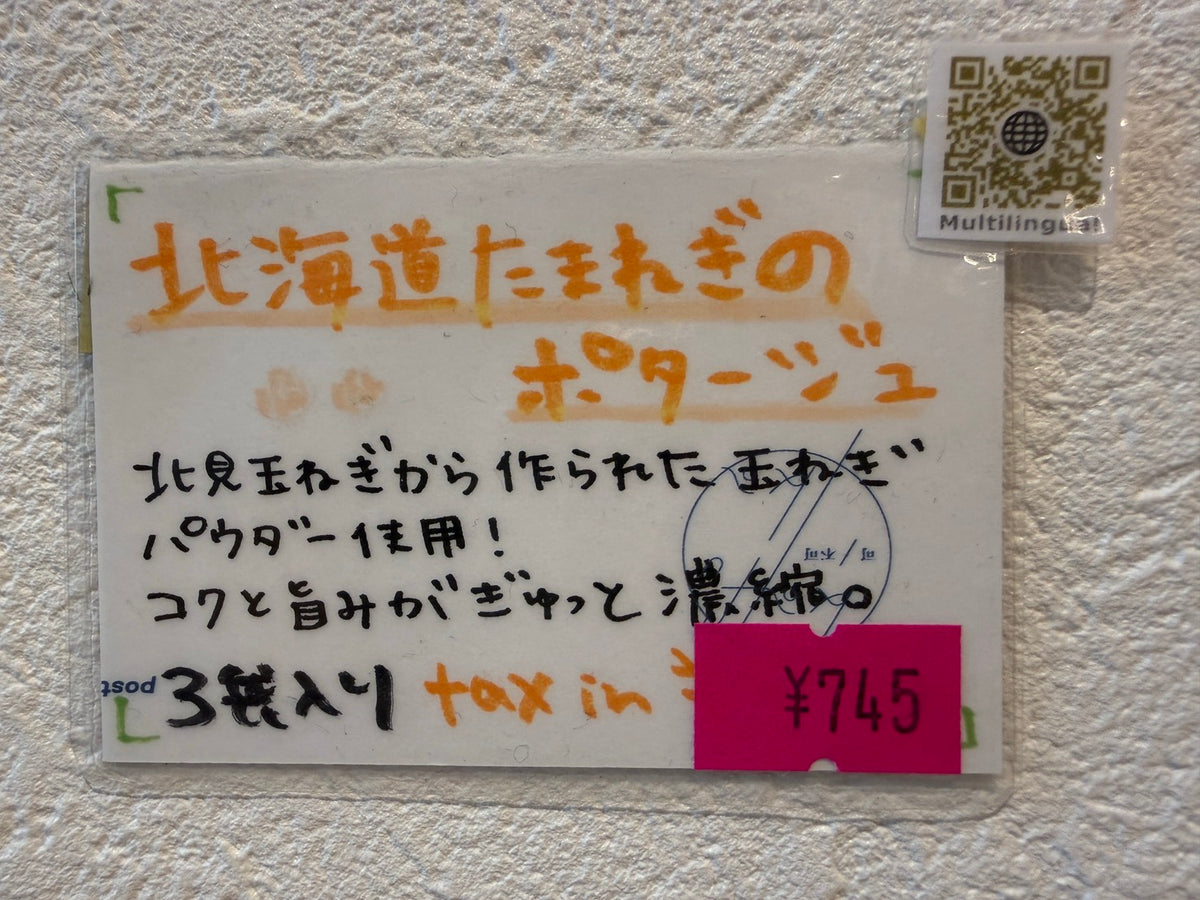 Multilingual
北海道たまねぎの
ポタージュ
北見玉ねぎから作られた玉ねぎ
パウダー使用!
コクと旨みがぎゅっと濃縮。
3袋入り tax in
¥745
post